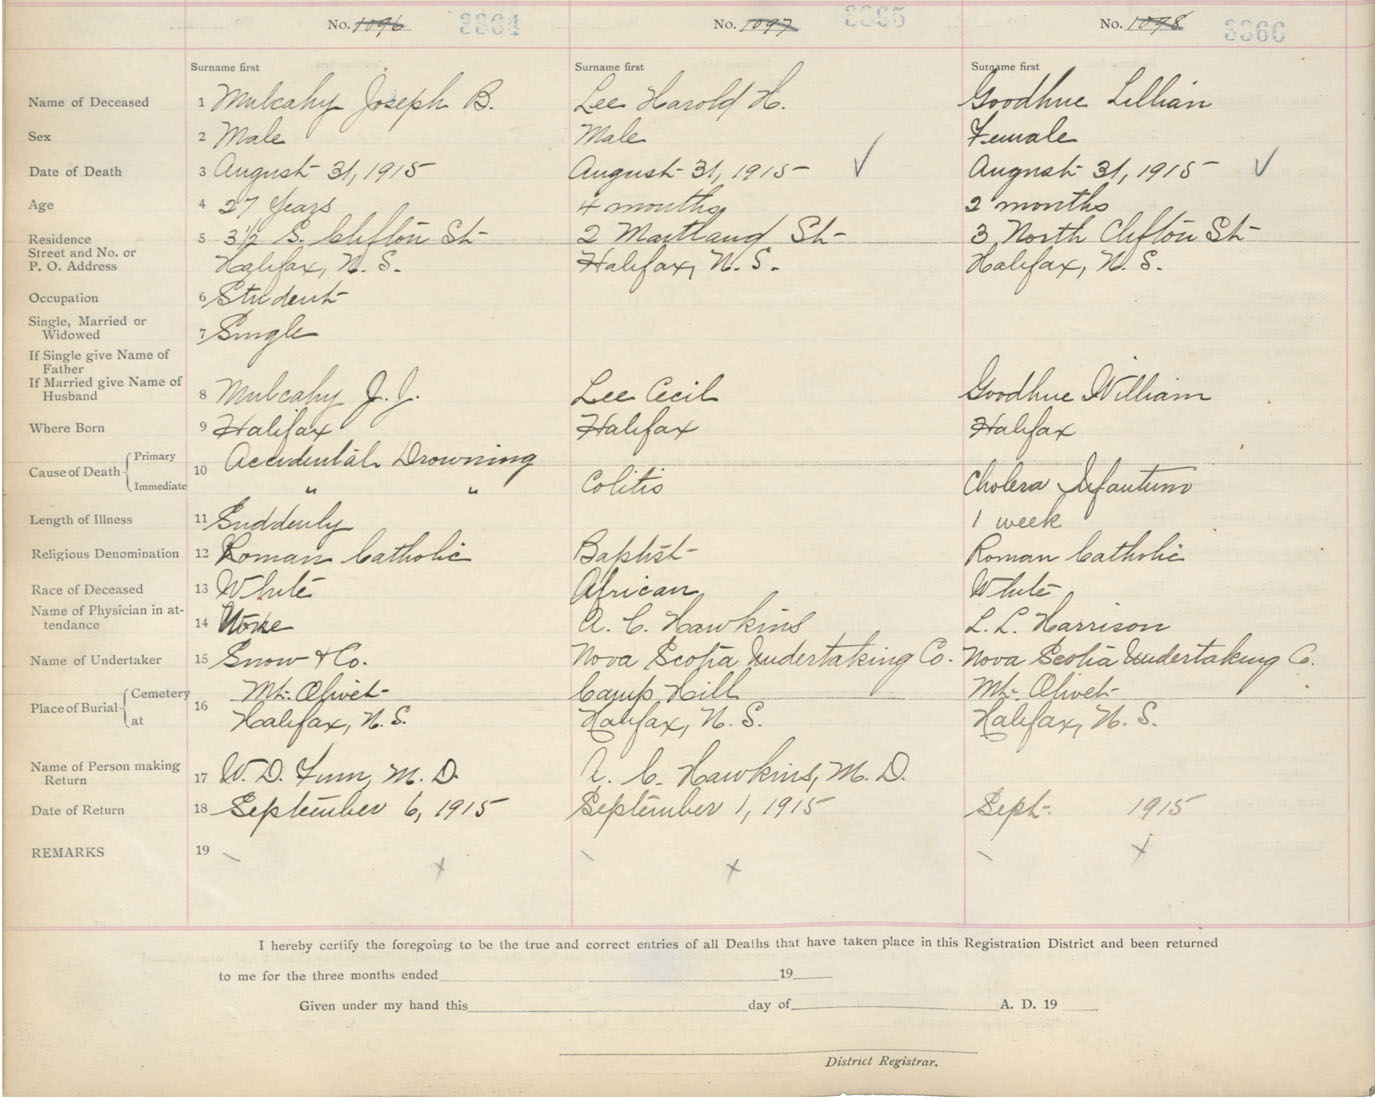 No. 1096 3364 No. 1097 3365 No. 1098 3366
Surname first Surname first Surname first
Name of Deceased 1 Mulcahy Joseph B. Lee Harold H. Goodhue Lillian
Sex 2 Male Male Female
Date of Death 3 August 31, 1915 August 31, 1915 August 31, 1915
Age 4 27 Years 4 months 2 months
Residence 5 3½ S. Clifton St 2 Maitland St 3 North Clifton St
Street and No. or
P. O. Address Halifax, N. S. Halifax, N. S. Halifax, N. S.
Occupation 6 Student
Single, Married or
Widowed 7 Single
If Single give Name of
Father
If Married give Name of
Husband 8 Mulcahy J. J. Lee Cecil Goodhue William
Where Born 9 Halifax Halifax Halifax
Cause of Death Primary 10 Accidental Drowning
Immediate " " Colitis Cholera Infantum
Length of Illness 11 Suddenly 1 week
Religious Denomination 12 Roman Catholic Baptist Roman Catholic
Race of Deceased 13 White African White
Name of Physician in at-
tendance 14 None A. C. Hawkins L. L. Harrison
Name of Undertaker 15 Snow & Co. Nova Scotia Undertaking Co. Nova Scotia Undertaking C.
Place of Burial Cemetery 16 Mt. Olivet Camp Hill Mt. Olivet
at Halifax, N. S. Halifax, N. S. Halifax, N. S.
Name of Person making
Return 17 W. D. Finn, M. D. A. C. Hawkins, M. D.
Date of Return 18 September 6, 1915 September 1, 1915 Sept. 1915
REMARKS 19
I hereby certify the foregoing to be the true and correct entries of all Deaths that have taken place in this Registration District and been returned
to me for the three months ended 19
Given under my hand this day of A. D. 19
District Registrar.